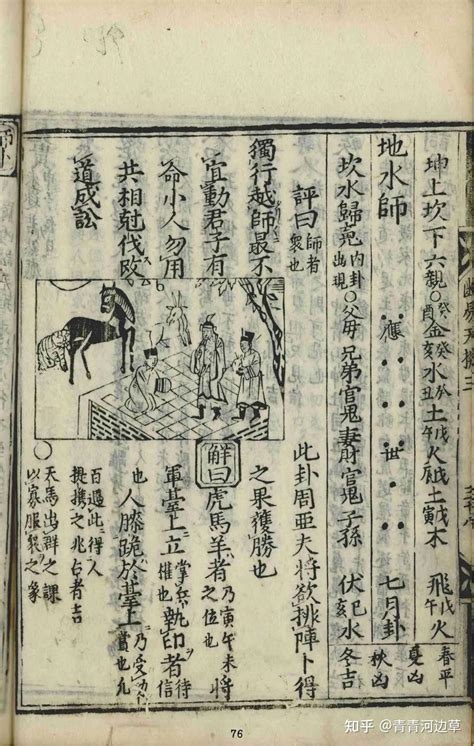 坤上坎下六親 癸酉金 癸亥水 癸丑土 戊午火 戊辰土 戊寅木 飛戊午火 春平 夏凶
地水師 應 世 七月卦 秋凶
坎水歸䰟 內卦出現 父母 兄弟 官鬼 妻財 官鬼 子孫 伏己亥水 冬吉
評曰 師者衆也 此卦周亞夫將欲排陣卜得
獨行越師最不 之果獲勝也
宜動君子有 解曰虎馬羊者 乃寅午未之位也 將
命小人勿用 軍臺上立 掌兵權也 執印者 信待
共相尅伐改 也 人膝跪於臺上 乃受功賞也 九
道成訟 百遇此得人提携之兆占者吉
天馬出群之課
以寡服衆之象
師卦
76
知乎 @青青河边草